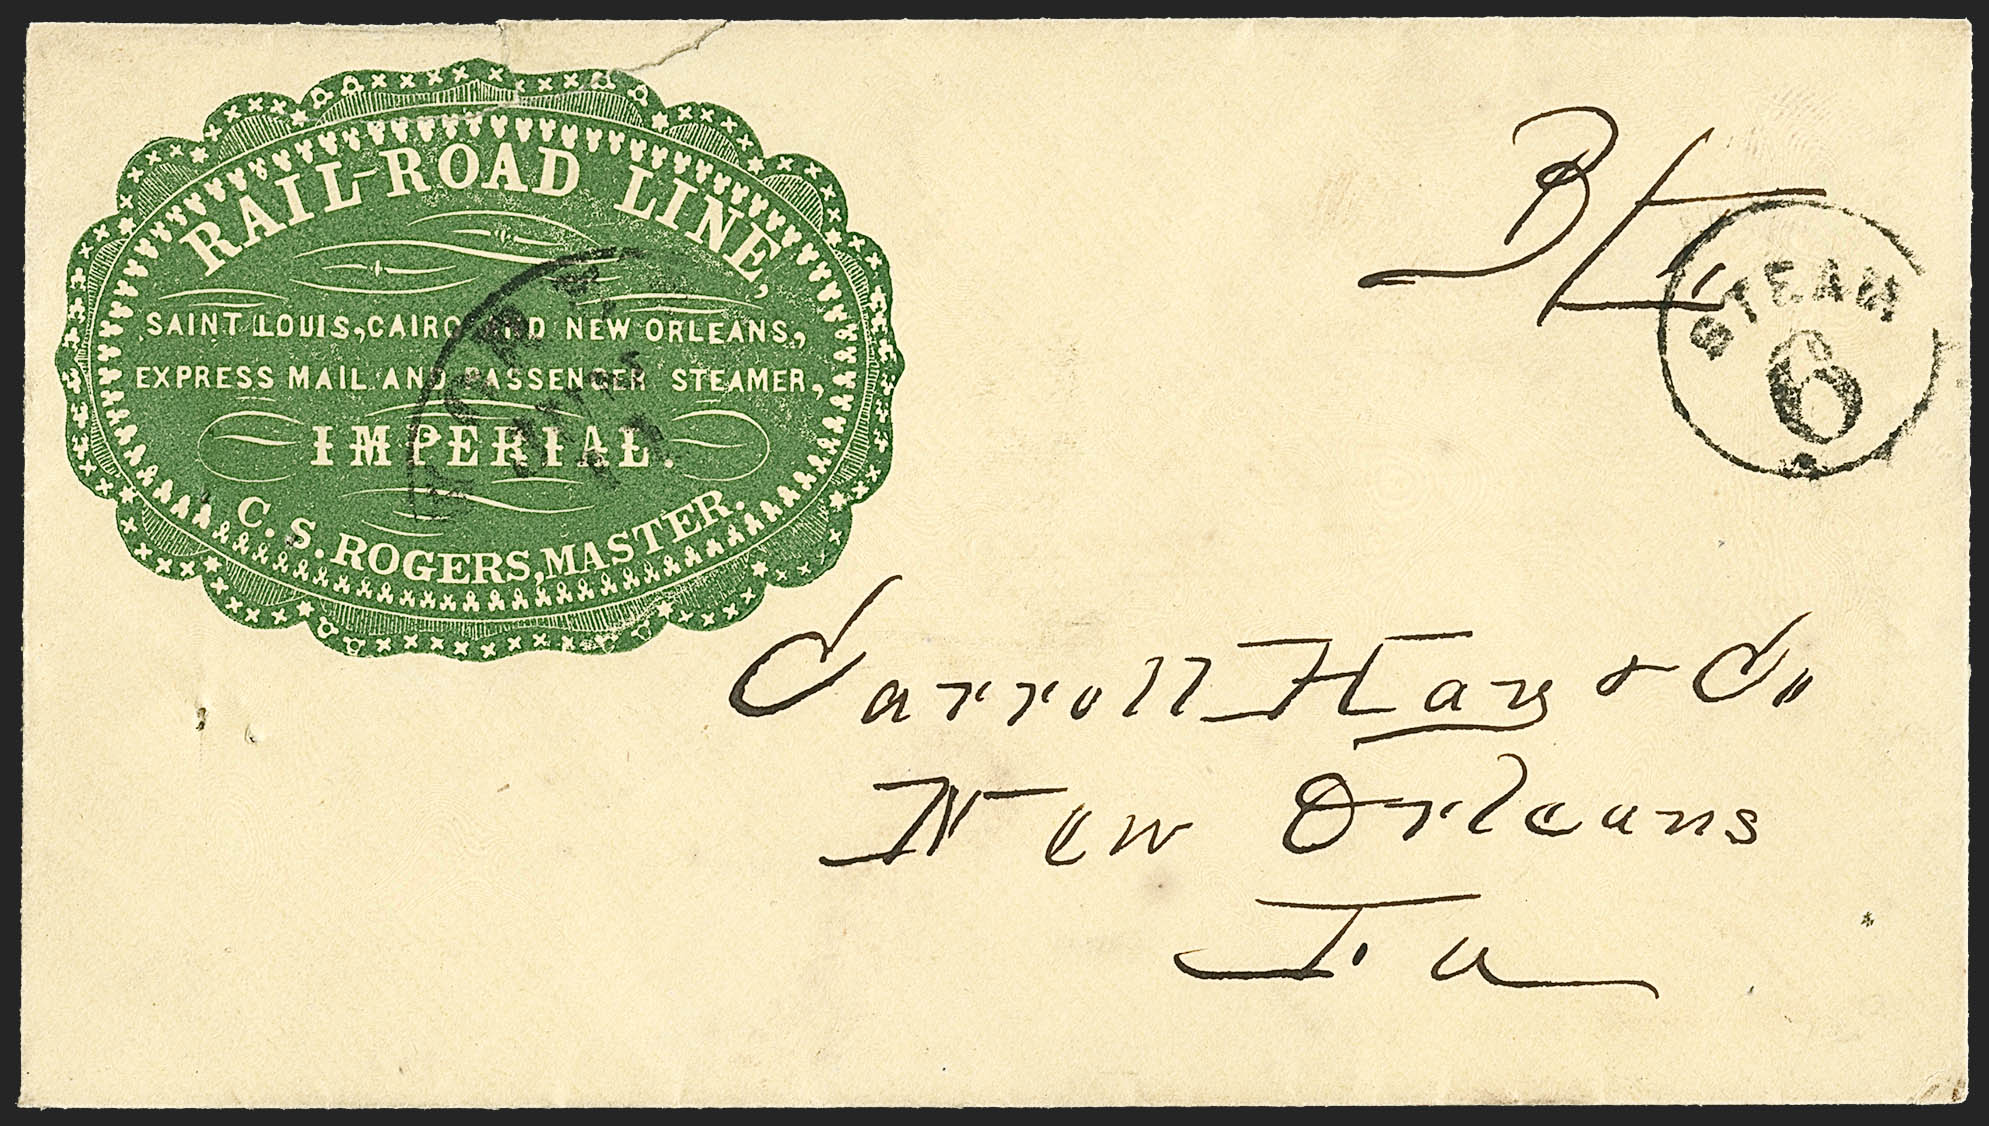 RAIL-ROAD LINE,
SAINT LOUIS, CAIRO AND NEW ORLEANS,
EXPRESS MAIL AND PASSENGER STEAMER,
IMPERIAL.
C. S. ROGERS, MASTER.
STEAM
6
Carroll Hay & Co
New Orleans
La